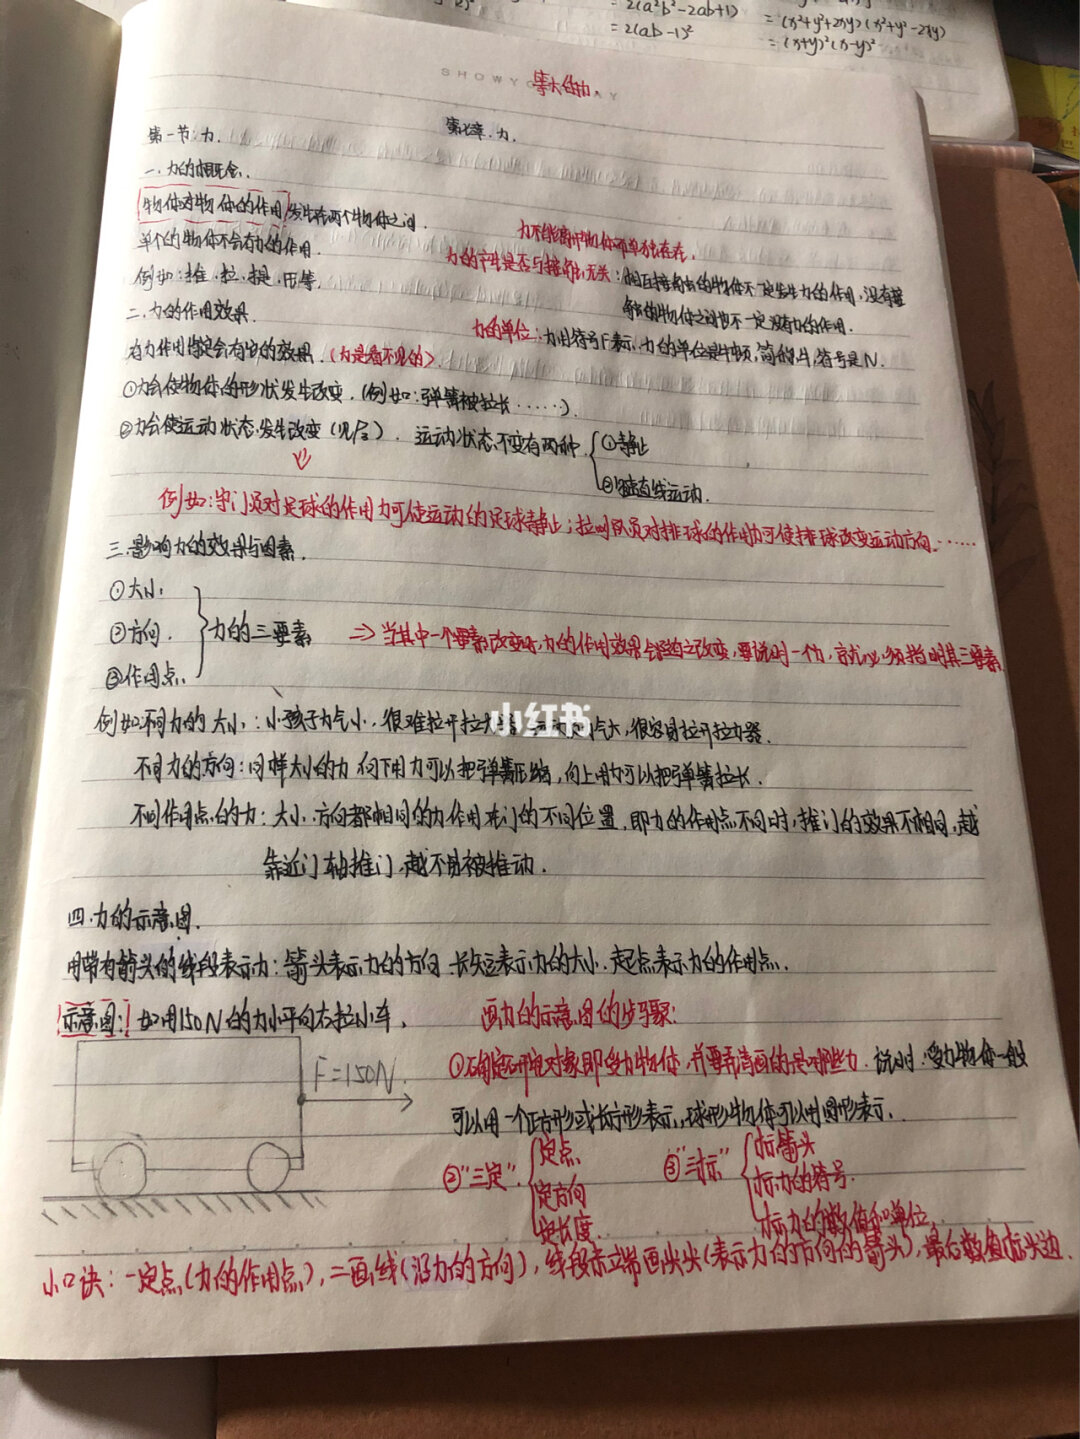 = 2(a²b²-2ab+1)
= 2(ab-1)²
= (x²+y²+2xy)(x²+y²-2xy)
= (x+y)²(x-y)²
SHOWY
第七章.力.
第一节:力.
一.力的概念.
物体对物体的作用,发生在两个物体之间.
力不能离开物体而单独存在.
单个的物体不会有力的作用.
力的产生是否与接触无关:相互接触的物体不一定发生力的作用,没有接
例如:推.拉.提.压等.
触的物体之间也不一定没有力的作用.
二.力的作用效果.
力的单位:力用符号F表示,力的单位是牛顿,简称牛,符号是N.
有力作用肯定会有力的效果.(力是看不见的)
①力会使物体的形状发生改变.(例如:弹簧被拉长……).
②力会使运动状态发生改变(见后).运动状态不变有两种
①静止
②匀速直线运动.
例如:守门员对足球的作用力可使运动的足球静止;排球队员对排球的作用力可使排球改变运动方向.……
三.影响力的效果与因素.
①大小.
②方向.
③作用点.
力的三要素
⇒当其中一个要素改变时,力的作用效果会随之改变,要说明一个力,就必须指明其三要素
例如:不同力的大小:小孩子力气小,很难拉开拉力器,气大,很容易拉开拉力器.
小红书
不同力的方向:同样大小的力向下用力可以把弹簧压缩,向上用力可以把弹簧拉长.
不同作用点的力:大小.方向都相同的力作用在门的不同位置.即力的作用点不同时,推门的效果不相同,越
靠近门轴推门,越不易被推动.
四.力的示意图.
用带有箭头的线段表示力:箭头表示力的方向.长短表示力的大小.起点表示力的作用点.
示意图:如用150N的力水平向右拉小车.
F=150N.
画力的示意图的步骤:
①确定研究对象即受力物体,并要弄清画的是哪些力.说明:受力物体一般
可以用一个正方形或长方形表示,球形物体可以用圆形表示.
②"三定":
定点
定方向
定长度.
③"三标"
标箭头
标力的符号.
标力的数值和单位.
小口诀:一定点(力的作用点),二画线(沿力的方向),线段末端画尖头(表示力的方向的箭头),最后数值标头边.